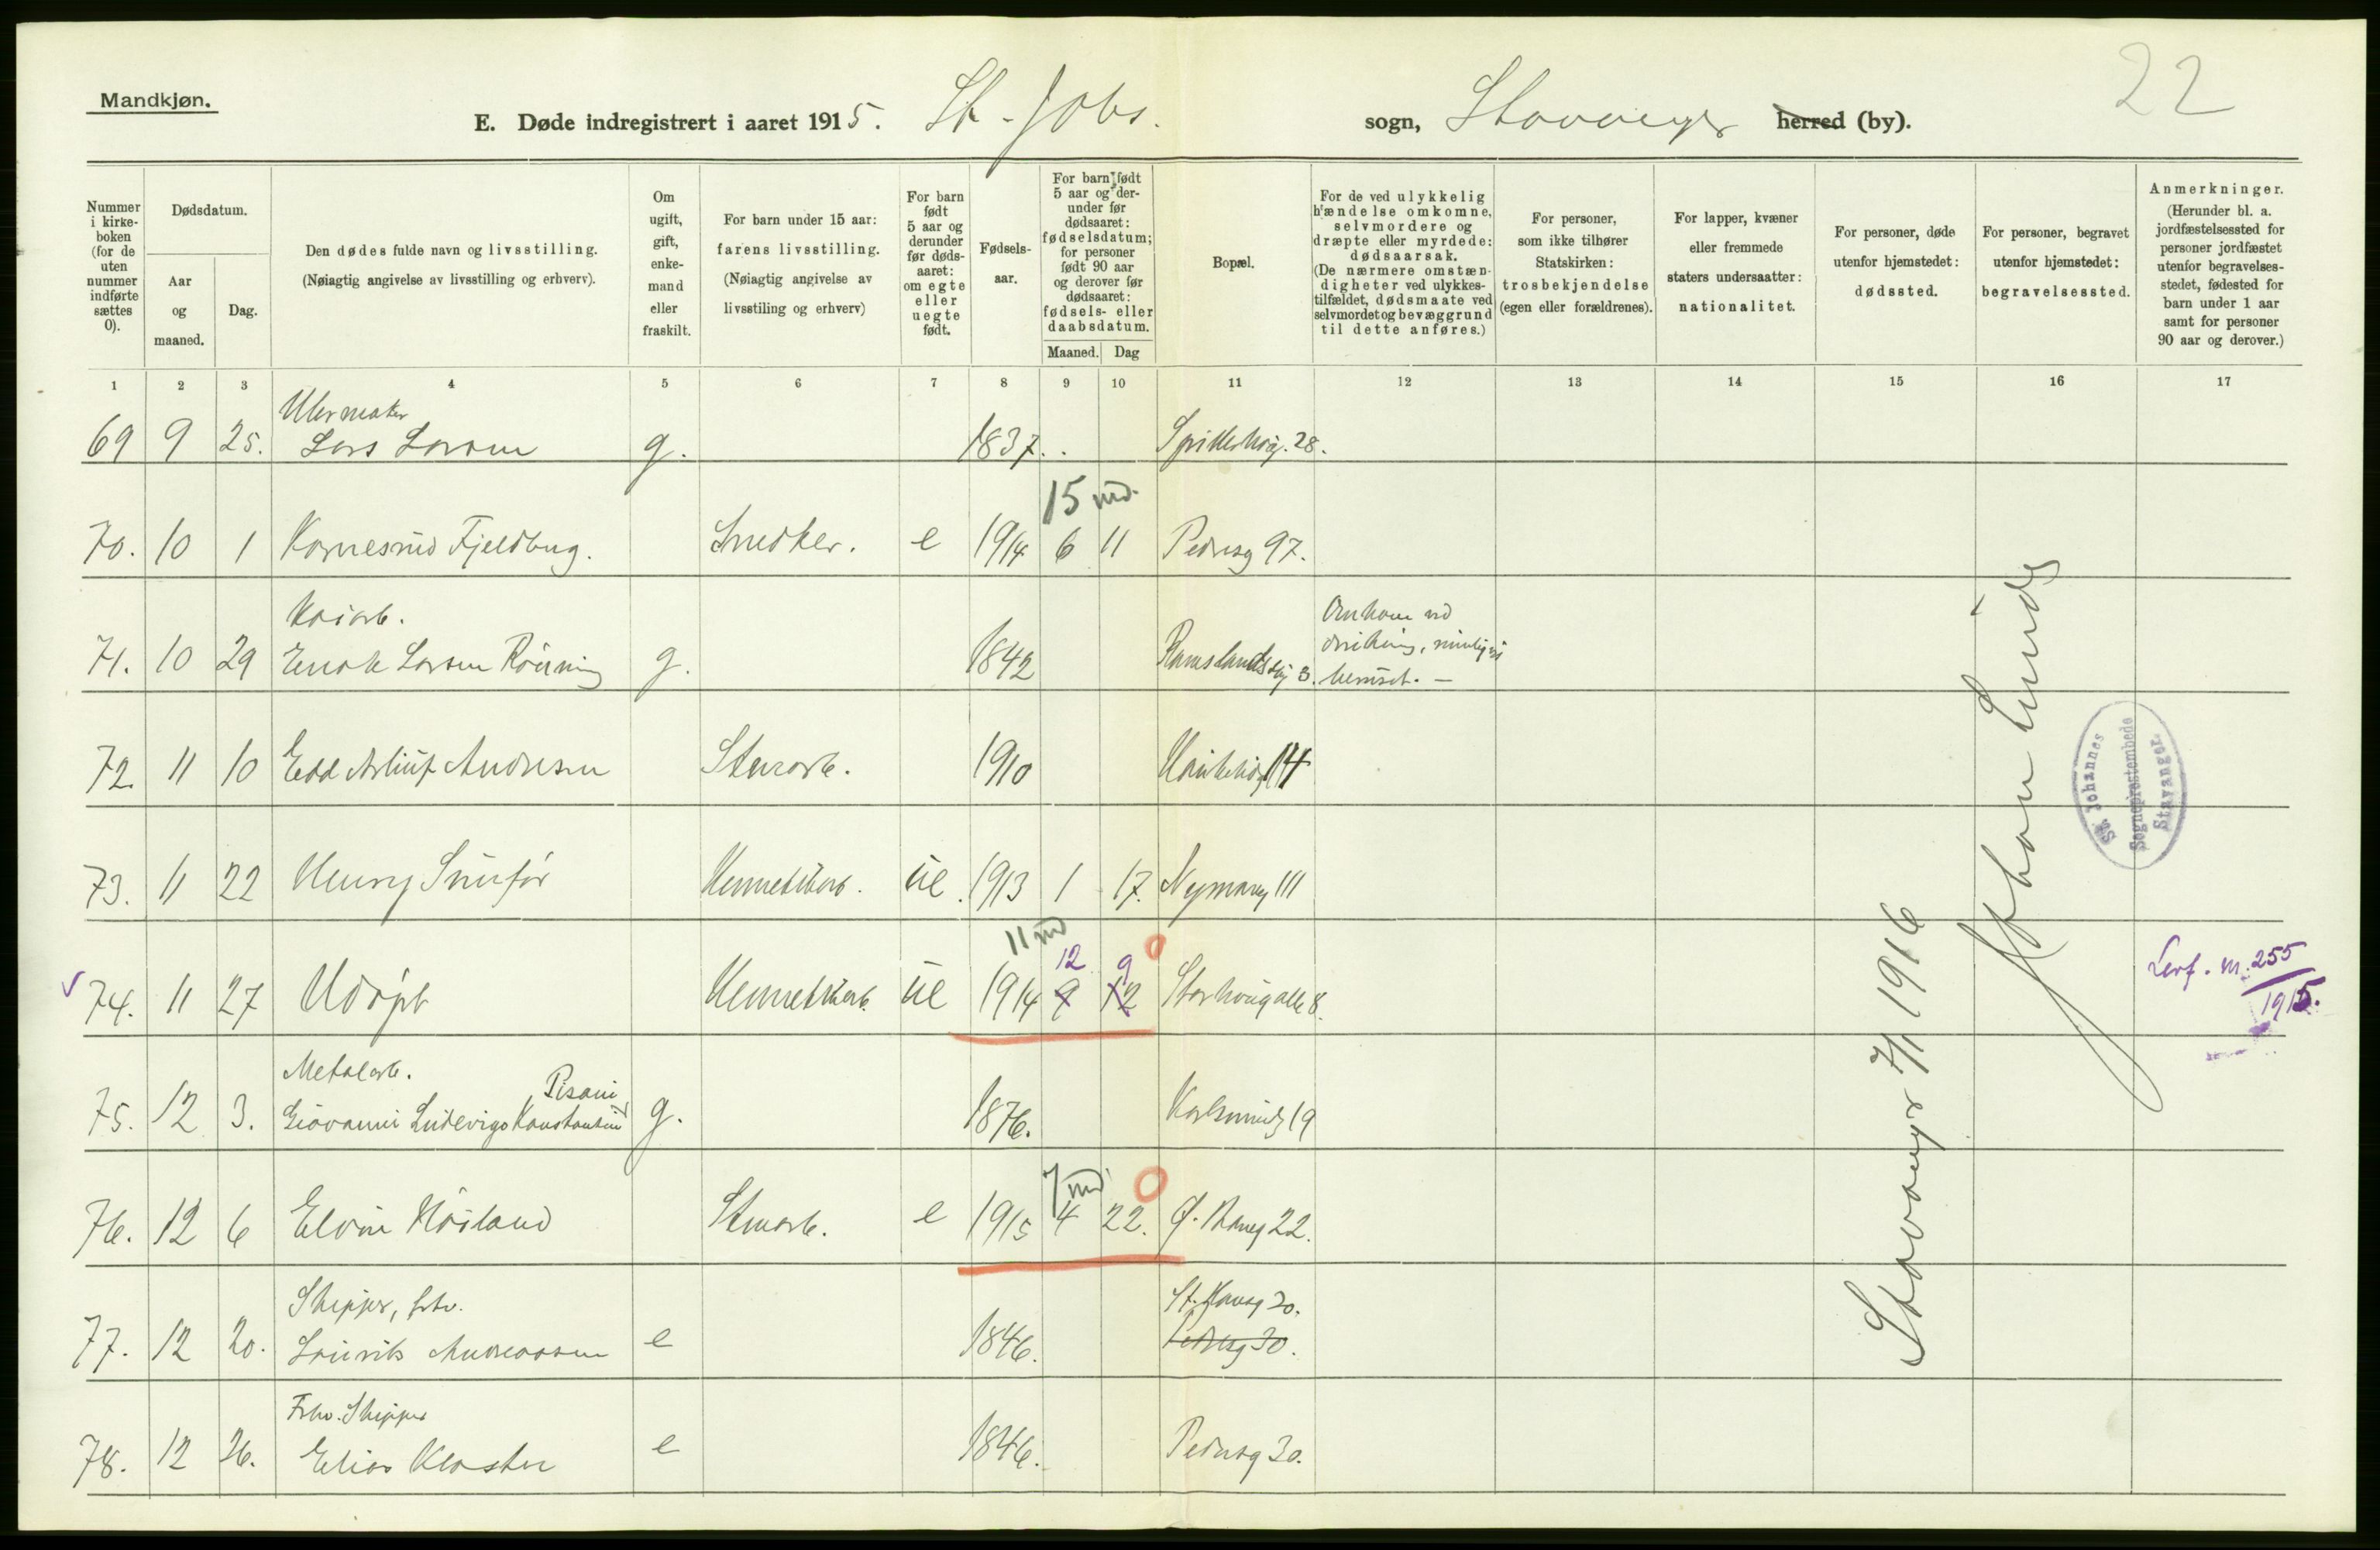 Mandkjøn.
22
E. Døde indregistrert i aaret 1915. St. Johs. sogn, Stavanger herred (by).
Nummer i kirke-boken (for de uten nummer indførte sættes 0).
Dødsdatum.
Aar og maaned.
Dag.
Den dødes fulde navn og livsstilling. (Nøiagtig angivelse av livsstilling og erhverv).
Om ugift, gift, enke-mand eller fraskilt.
For barn under 15 aar: farens livsstilling. (Nøiagtig angivelse av livsstiling og erhverv)
For barn født 5 aar og derunder før døds-aaret: om egte eller uegte født.
Fødsels-aar.
For barn født 5 aar og der-under før dødsaaret: fødselsdatum; for personer født 90 aar og derover før dødsaaret: fødsels- eller daabsdatum.
Maaned. Dag
Bopæl.
For de ved ulykkelig hændelse omkomne, selvmordere og dræpte eller myrdede: dødsaarsak. (De nærmere omstæn-digheter ved ulykkes-tilfældet, dødsmaate ved selvmordet og bevæggrund til dette anføres.)
For personer, som ikke tilhører Statskirken: trosbekjendelse (egen eller forældrenes).
For lapper, kvæner eller fremmede staters undersaatter: nationalitet.
For personer, døde utenfor hjemstedet: dødssted.
For personer, begravet utenfor hjemstedet: begravelsessted.
Anmerkninger. (Herunder bl. a. jordfæstelsessted for personer jordfæstet utenfor begravelses-stedet, fødested for barn under 1 aar samt for personer 90 aar og derover.)
1 2 3 4 5 6 7 8 9 10 11 12 13 14 15 16 17
Uhrmaker
69 9 25. Lars Larsen g. 1837. 28.
15 md.
70. 10 1 Fjeldberg. Snedker. e 1914 6 11 Pedersg 97.
Kaiarb.
71. 10 29 Enok Larsen Rönning g. 1842 Ramslandsg 3. Omkom ved
drukning, rimeligvis
beruset. —
72. 11 10 Edd Andresen Stuearb. 1910 114
73. 11 22 Henry Hermetikarb. ue. 1913 1 17. Nymansg 111
11 md 12 9
74. 11 27 Udöpt Hermetikarb. ue 1914 9 12 Storhougalle 8. Levf. nr. 255
1915.
Metalarb. Pisani
75. 12 3. Giovanni Ludevigo Konstantin g. 1876. Karlsmindeg 19
7 md
76. 12 6 Höiland Stuearb. e 1915 4 22. Ø. Ringg 22.
Skipper, frhv. St. Hansg 20.
77. 12 20. Laurits Andreassen e 1846. Pedersg 30.
Frhv. Skipper
78. 12 26. Elias Kloster e 1846. Pedersg 30.
Stavanger 7/1 1916
Johan Lunde
St. Johannes
Sogneprestembede
Stavanger.